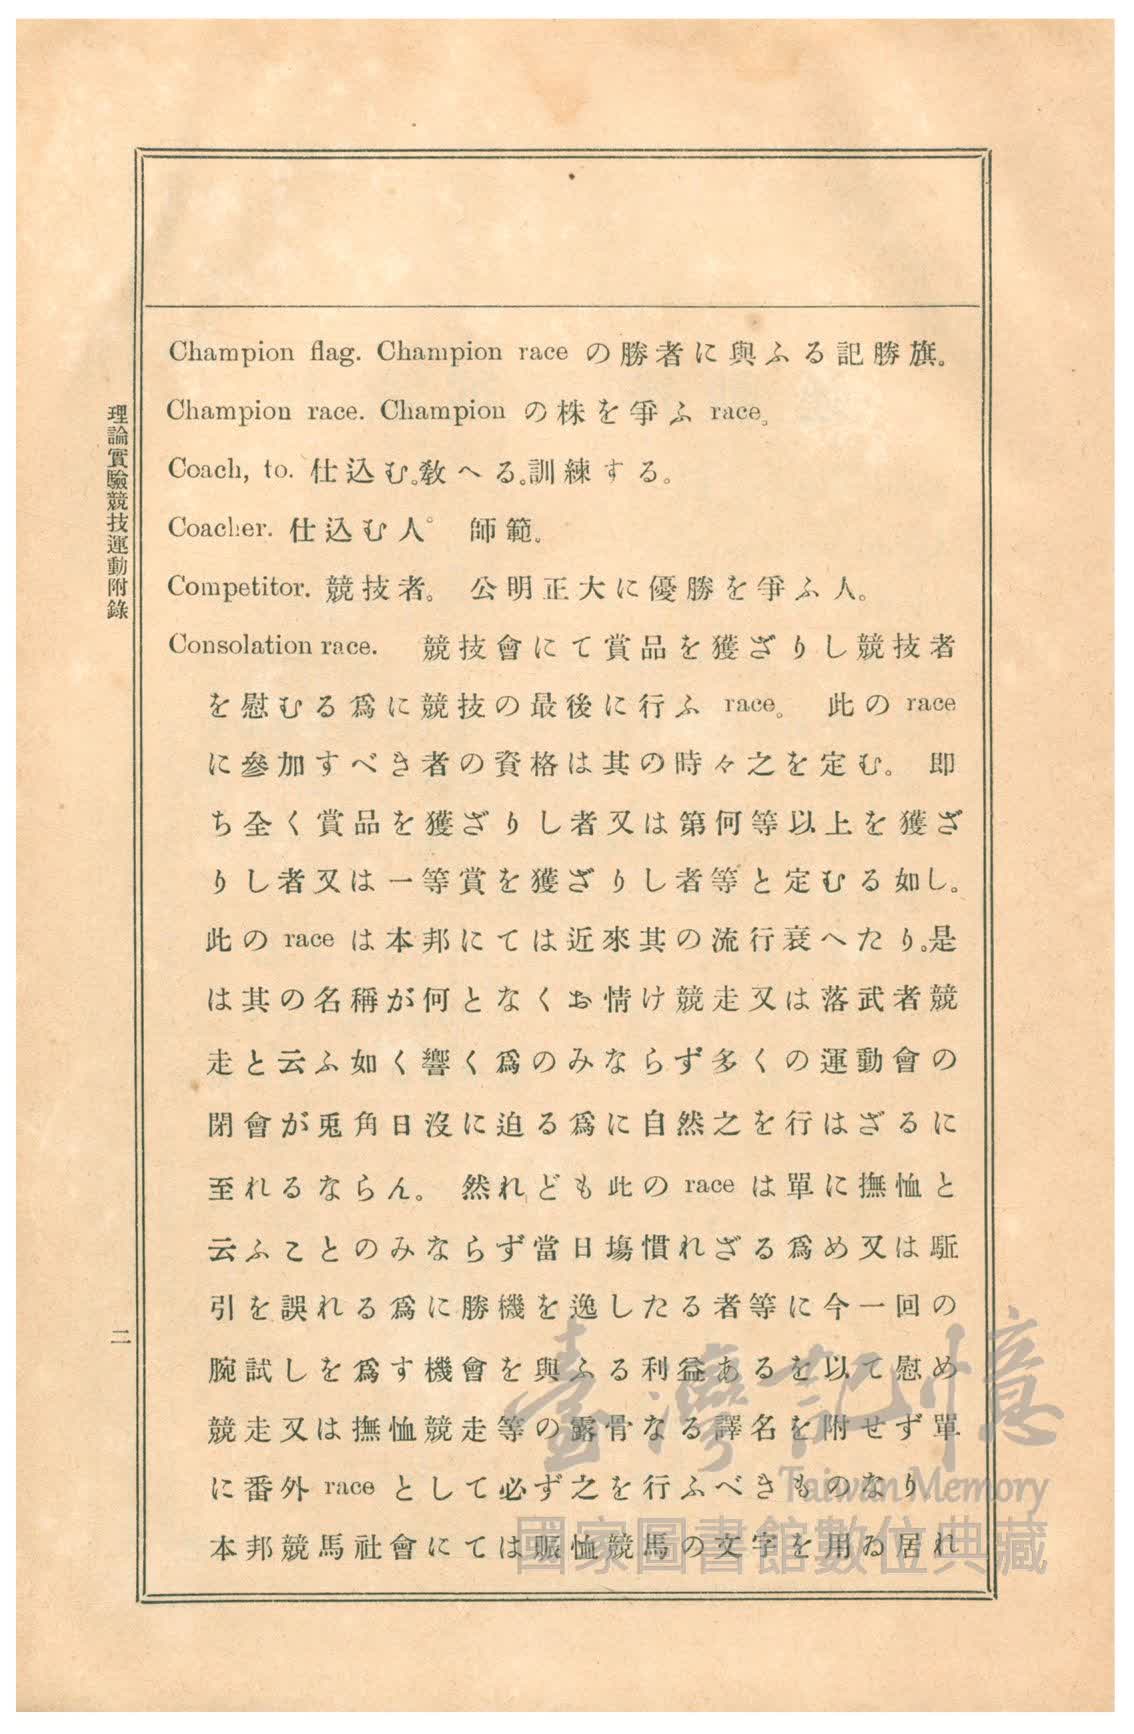 Champion flag. Champion race の勝者に與ふる記勝旗。
Champion race. Champion の株を爭ふ race。
Coach, to. 仕込む。敎へる。訓練する。
Coacher. 仕込む人。 師範。
Competitor. 競技者。 公明正大に優勝を爭ふ人。
Consolation race. 競技會にて賞品を獲ざりし競技者
を慰むる爲に競技の最後に行ふ race。 此の race
に參加すべき者の資格は其の時々之を定む。 即
ち全く賞品を獲ざりし者又は第何等以上を獲ざ
りし者又は一等賞を獲ざりし者等と定むる如し。
此の race は本邦にては近來其の流行衰へたり。是
は其の名稱が何となくお情け競走又は落武者競
走と云ふ如く響く爲のみならず多くの運動會の
閉會が兎角日沒に迫る爲に自然之を行はざるに
至れるならん。 然れども此の race は單に撫恤と
云ふことのみならず當日塲慣れざる爲め又は駈
引を誤れる爲に勝機を逸したる者等に今一回の
腕試しを爲す機會を與ふる利益あるを以て慰め
競走又は撫恤競走等の露骨なる譯名を附せず單
に番外 race として必ず之を行ふべきものなり
本邦競馬社會にては賑恤競馬の文字を用ゐ居れ
理論實驗競技運動附錄
二
臺灣記憶
Taiwan Memory
國家圖書館數位典藏